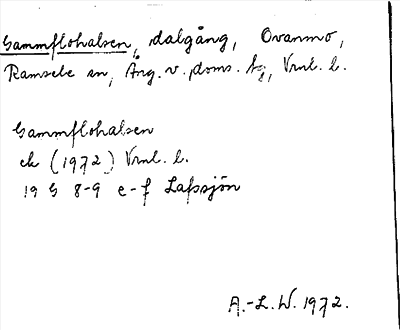 Gammflohalsen, dalgång, Ovanmo,
Ramsele sn, Ång. v. doms. tg, Vnl. l.
Gammflohalsen
ek (1972) Vnl. l.
19 G 8-9 e-f Lafssjön
A.-L. W. 1972.